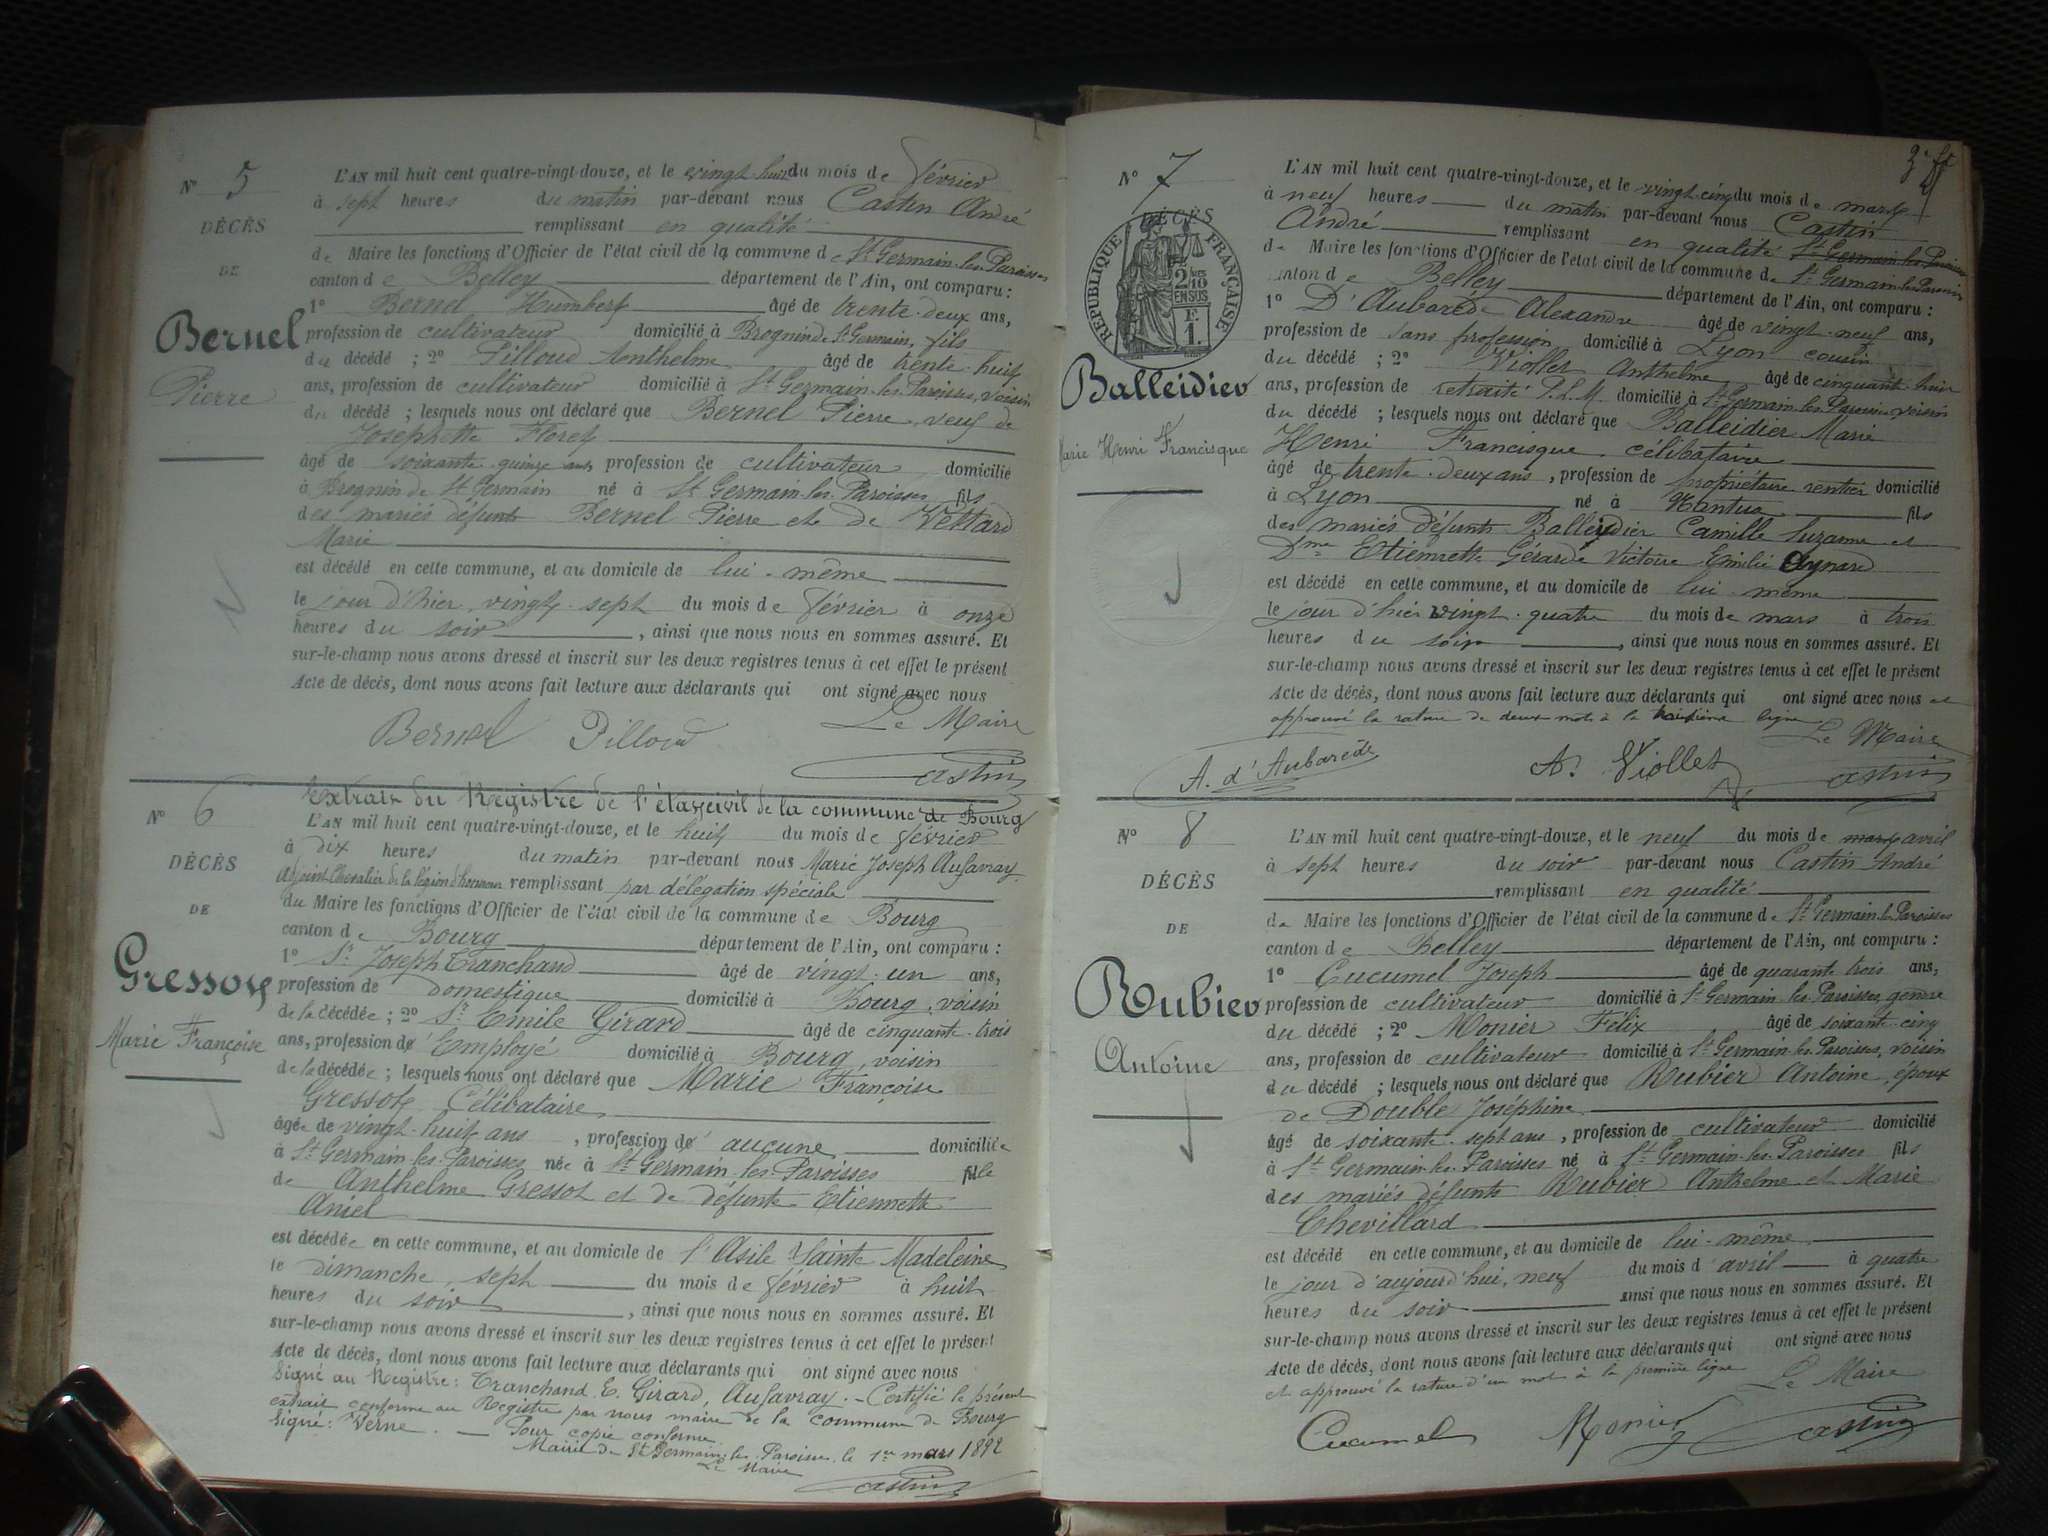 Nº 5
DÉCÈS
DE
Bernel
Pierre
L'AN mil huit cent quatre-vingt-douze, et le vingt huit du mois de février
à sept heures du matin par-devant nous Castin André
remplissant en qualité
de Maire les fonctions d'Officier de l'état civil de la commune de St Germain-les-Paroisses
canton de Belley département de l'Ain, ont comparu :
1º Bernel Humbert âgé de trente-deux ans,
profession de cultivateur domicilié à Brognin de St Germain, fils
du décédé ; 2º Pilloud Anthelme âgé de trente huit
ans, profession de cultivateur domicilié à St Germain-les-Paroisses, voisin
du décédé ; lesquels nous ont déclaré que Bernel Pierre, veuf de
Josephette Floret
âgé de soixante-quinze ans profession de cultivateur domicilié
à Brognin de St Germain né à St Germain-les-Paroisses fils
des mariés défunts Bernel Pierre et de Vettard
Marie
est décédé en cette commune, et au domicile de lui-même
le jour d'hier, vingt-sept du mois de février à onze
heures du soir, ainsi que nous nous en sommes assuré. Et
sur-le-champ nous avons dressé et inscrit sur les deux registres tenus à cet effet le présent
Acte de décès, dont nous avons fait lecture aux déclarants qui ont signé avec nous
Le Maire
Bernel Pilloud
Castin
Nº 6
DÉCÈS
DE
Gressot
Marie Françoise
Extrait du Registre de l'état civil de la commune de Bourg
L'AN mil huit cent quatre-vingt-douze, et le huit du mois de février
à dix heures du matin par-devant nous Marie Joseph Aufavray
Adjoint Chevalier de la légion d'honneur remplissant par délégation spéciale
du Maire les fonctions d'Officier de l'état civil de la commune de Bourg
canton de Bourg département de l'Ain, ont comparu :
1º Sr Joseph Tranchand âgé de vingt-un ans,
profession de domestique domicilié à Bourg, voisin
de la décédée ; 2º Sr Emile Girard âgé de cinquante-trois
ans, profession d' Employé domicilié à Bourg, voisin
de la décédée ; lesquels nous ont déclaré que Marie Françoise
Gressot Célibataire
âgée de vingt-huit ans, profession d' aucune domiciliée
à St Germain-les-Paroisses née à St Germain-les-Paroisses fille
de Anthelme Gressot et de défunte Etiennette
Aniel
est décédée en cette commune, et au domicile de l'Asile Sainte Madeleine
le dimanche, sept du mois de février à huit
heures du soir, ainsi que nous nous en sommes assuré. Et
sur-le-champ nous avons dressé et inscrit sur les deux registres tenus à cet effet le présent
Acte de décès, dont nous avons fait lecture aux déclarants qui ont signé avec nous
Signé au Registre : Tranchand, E. Girard, Aufavray. - Certifié le présent
extrait conforme au Registre par nous maire de la commune de Bourg
Signé : Verne. - Pour copie conforme
Mairie de St Germain-les-Paroisses le 1er mars 1892
Le Maire
Castin
Nº 7
DÉCÈS
RÉPUBLIQUE FRANÇAISE
2/10
EN SUS
F.
1.
Balleidier
Marie Henri Francisque
L'AN mil huit cent quatre-vingt-douze, et le vingt-cinq du mois de mars
à neuf heures du matin par-devant nous Castin
André remplissant en qualité St Germain-les-Paroisses
de Maire les fonctions d'Officier de l'état civil de la commune de St Germain-les-Paroisses
canton de Belley département de l'Ain, ont comparu :
1º D'Aubarède Alexandre âgé de vingt-neuf ans,
profession de sans profession domicilié à Lyon cousin
du décédé ; 2º Viollet Anthelme âgé de cinquante-huit
ans, profession de retraité P.L.M. domicilié à St Germain-les-Paroisses voisin
du décédé ; lesquels nous ont déclaré que Balleidier Marie
Henri Francisque, célibataire
âgé de trente-deux ans, profession de propriétaire rentier domicilié
à Lyon né à Nantua fils
des mariés défunts Balleydier Camille Suzanne et
Dme Etiennette Gérarde Victoire Emilie Aynard
est décédé en cette commune, et au domicile de lui-même
le jour d'hier vingt-quatre du mois de mars à trois
heures du soir, ainsi que nous nous en sommes assuré. Et
sur-le-champ nous avons dressé et inscrit sur les deux registres tenus à cet effet le présent
Acte de décès, dont nous avons fait lecture aux déclarants qui ont signé avec nous et
approuvé la rature de deux mots à la troisième ligne
Le Maire
A. d'Aubarède A. Viollet Castin
Nº 8
DÉCÈS
DE
Rubier
Antoine
L'AN mil huit cent quatre-vingt-douze, et le neuf du mois de mars avril
à sept heures du soir par-devant nous Castin André
remplissant en qualité
de Maire les fonctions d'Officier de l'état civil de la commune de St Germain-les-Paroisses
canton de Belley département de l'Ain, ont comparu :
1º Cucumel Joseph âgé de quarante trois ans,
profession de cultivateur domicilié à St Germain-les-Paroisses, gendre
du décédé ; 2º Monier Félix âgé de soixante-cinq
ans, profession de cultivateur domicilié à St Germain-les-Paroisses, voisin
du décédé ; lesquels nous ont déclaré que Rubier Antoine, époux
de Double Joséphine
âgé de soixante-sept ans, profession de cultivateur domicilié
à St Germain-les-Paroisses né à St Germain-les-Paroisses fils
des mariés défunts Rubier Anthelme et Marie
Chevillard
est décédé en cette commune, et au domicile de lui-même
le jour d'aujourd'hui, neuf du mois d'avril à quatre
heures du soir ainsi que nous nous en sommes assuré. Et
sur-le-champ nous avons dressé et inscrit sur les deux registres tenus à cet effet le présent
Acte de décès, dont nous avons fait lecture aux déclarants qui ont signé avec nous
et approuvé la rature d'un mot à la première ligne
Le Maire
Cucumel Monier Castin